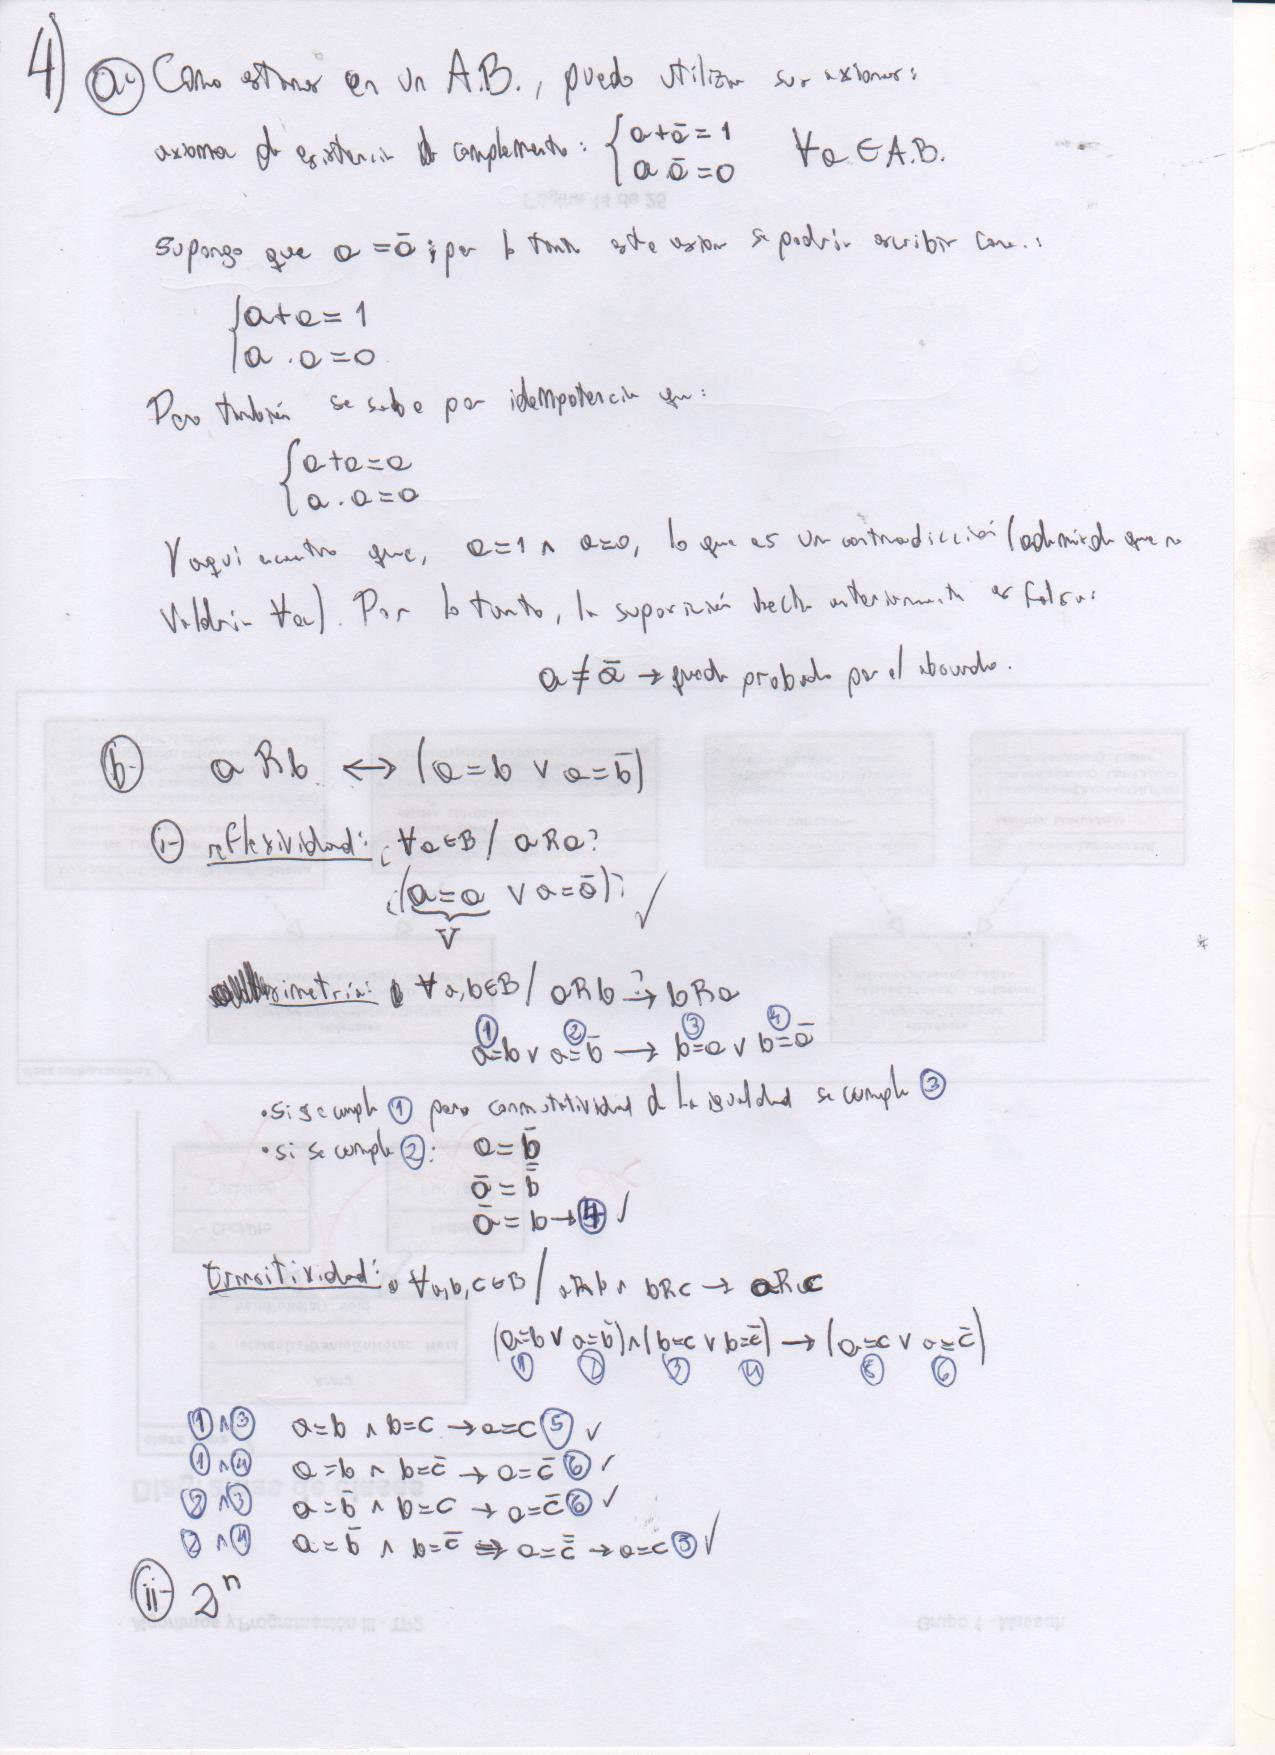 4) a- Como estamos en un A.B., puedo utilizar sus axiomas:
axioma de existencia de complemento: { a+ā=1 ∀a∈A.B.
a.ā=0
Supongo que a=ā; por lo tanto este axioma se podría escribir como:
{ a+a=1
a.a=0
Pero también se sabe por idempotencia que:
{ a+a=a
a.a=a
Y aquí encuentro que, a=1 ∧ a=0, lo que es un contradicción (además de que no
valdría ∀a). Por lo tanto, la suposición hecha anteriormente es falsa:
a≠ā → queda probado por el absurdo.
b- aRb ↔ (a=b ∨ a=b̄)
i- reflexividad: ¿∀a∈B / aRa?
¿(a=a ∨ a=ā)? ✓
V
simetría: ∀a,b∈B / aRb →? bRa
① ② ③ ④
a=b ∨ a=b̄ → b=a ∨ b=ā
• si se cumple ① para conmutatividad de la igualdad se cumple ③
• si se cumple ②: a=b̄
ā=b̿
ā=b → ④ ✓
transitividad: ∀a,b,c∈B / aRb ∧ bRc → aRc
(a=b ∨ a=b̄) ∧ (b=c ∨ b=c̄) → (a=c ∨ a=c̄)
① ② ③ ④ ⑤ ⑥
① ∧ ③ a=b ∧ b=c → a=c ⑤ ✓
① ∧ ④ a=b ∧ b=c̄ → a=c̄ ⑥ ✓
② ∧ ③ a=b̄ ∧ b=c → a=c̄ ⑥ ✓
② ∧ ④ a=b̄ ∧ b=c̄ → a=c̿ → a=c ⑤ ✓
ii- 2ⁿ